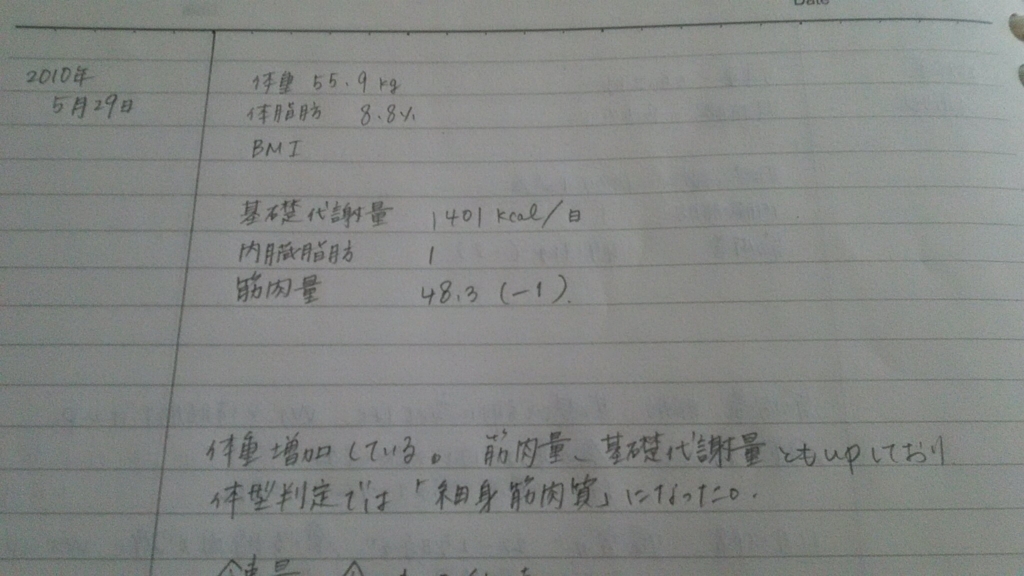 Date
2010年
5月29日
体重 55.9kg
体脂肪 8.8%
BMI
基礎代謝量 1401 kcal/日
内臓脂肪 1
筋肉量 48.3 (-1).
体重増加している。筋肉量、基礎代謝量ともupしており
体型判定では「細身筋肉質」になった。